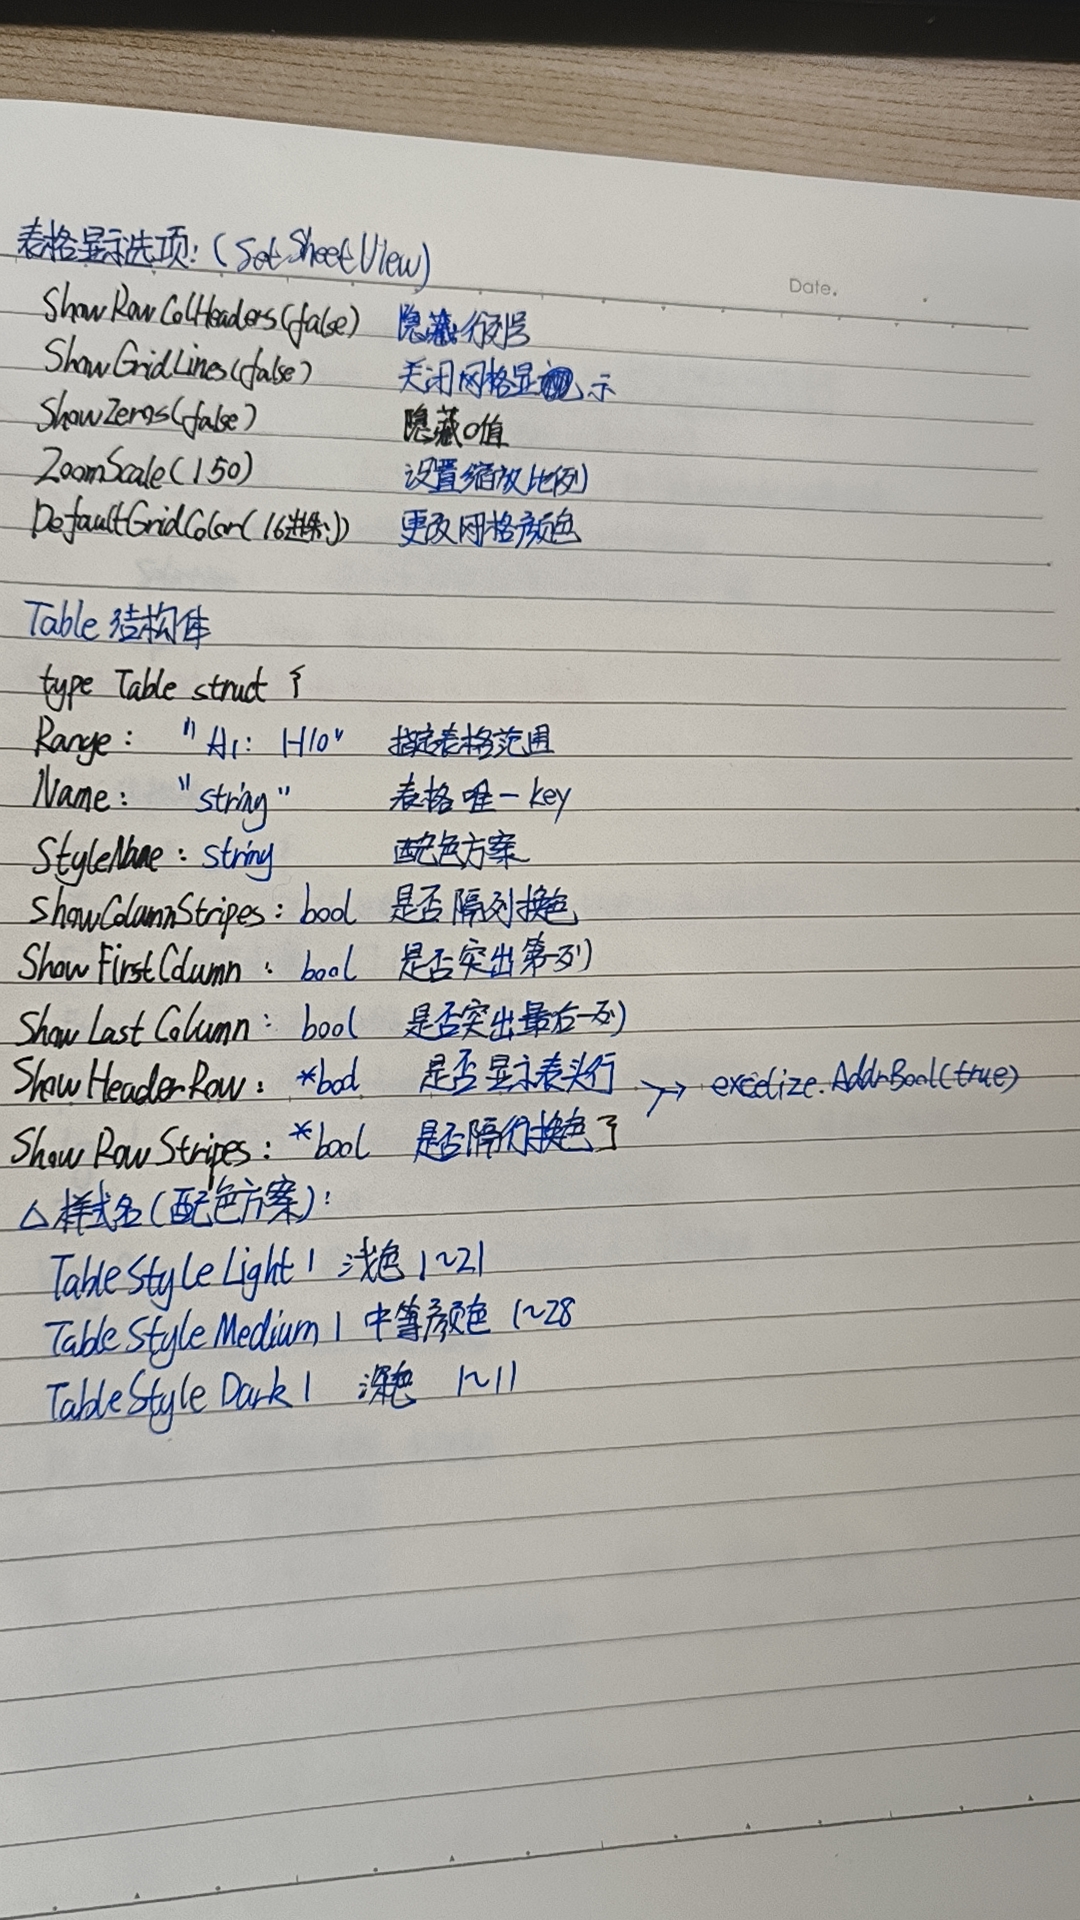 表格显示选项:(SetSheetView)
Date.
ShowRowColHeaders(false) 隐藏行列号
ShowGridLines(false) 关闭网格显示
ShowZeros(false) 隐藏0值
ZoomScale(150) 设置缩放比例
DefaultGridColor(16进制) 更改网格颜色
Table 结构体
type Table struct {
Range: "A1:H10" 指定表格范围
Name: "string" 表格唯一key
StyleName: string 配色方案
ShowColumnStripes: bool 是否隔列换色
ShowFirstColumn: bool 是否突出第一列
ShowLastColumn: bool 是否突出最后一列
ShowHeaderRow: *bool 是否显示表头行 → excelize.AddrBool(true)
ShowRowStripes: *bool 是否隔行换色 }
△样式名(配色方案):
TableStyleLight1 浅色 1~21
TableStyleMedium1 中等颜色 1~28
TableStyleDark1 深色 1~11